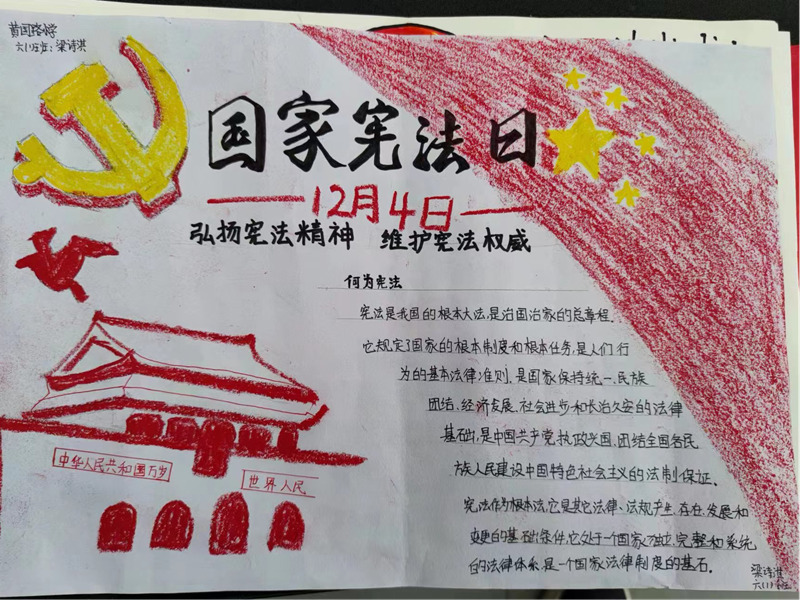 黄冈路小学
六(1)班：梁诗淇
国家宪法日
12月4日
弘扬宪法精神 维护宪法权威
何为宪法
宪法是我国的根本大法,是治国治家的总章程.
它规定了国家的根本制度和根本任务,是人们行
为的基本法律准则,是国家保持统一、民族
团结、经济发展、社会进步和长治久安的法律
基础,是中国共产党执政兴国、团结全国各民
族人民建设中国特色社会主义的法制保证.
宪法作为根本法,它是其它法律、法规产生、存在、发展和
变更的基础条件,它处于一个国家独立、完整和系统
的法律体系,是一个国家法律制度的基石.
中华人民共和国万岁
世界人民
梁诗淇
六(1)班